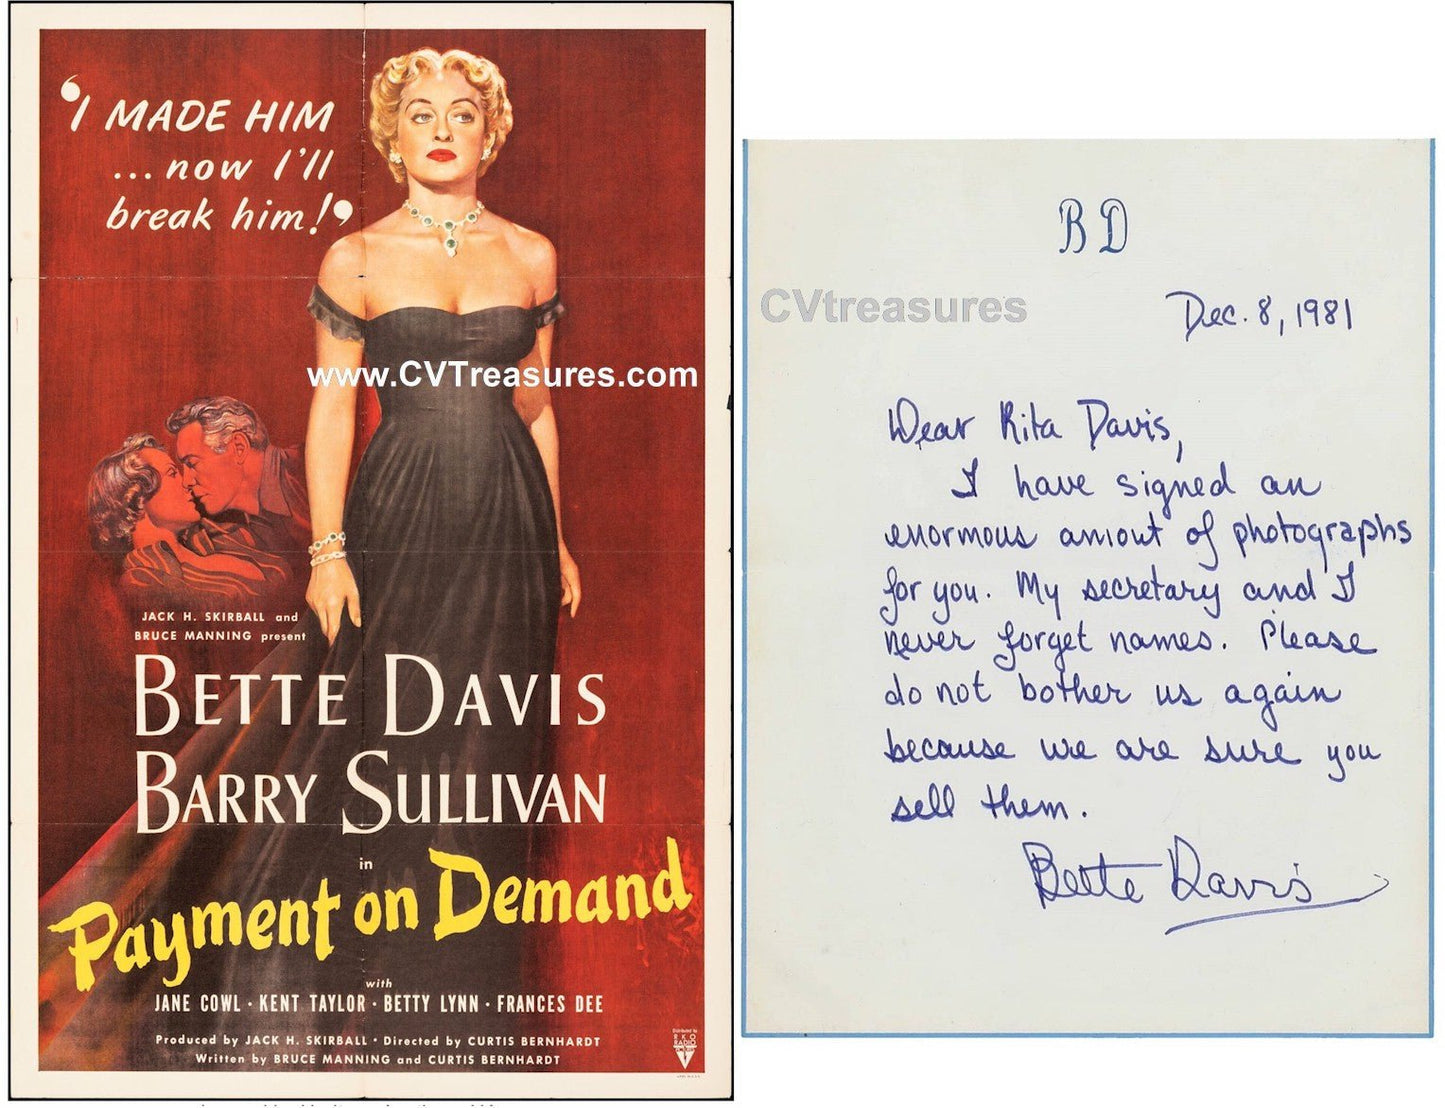 ‘I MADE HIM
... now I'll
break him!’
www.CVTreasures.com
JACK H. SKIRBALL and
BRUCE MANNING present
BETTE DAVIS
BARRY SULLIVAN
in
Payment on Demand
with
JANE COWL · KENT TAYLOR · BETTY LYNN · FRANCES DEE
Produced by JACK H. SKIRBALL · Directed by CURTIS BERNHARDT
Written by BRUCE MANNING and CURTIS BERNHARDT
Distributed by
RKO
RADIO
BD
CVtreasures
Dec. 8, 1981
Dear Rita Davis,
I have signed an
enormous amount of photographs
for you. My secretary and I
never forget names. Please
do not bother us again
because we are sure you
sell them.
Bette Davis